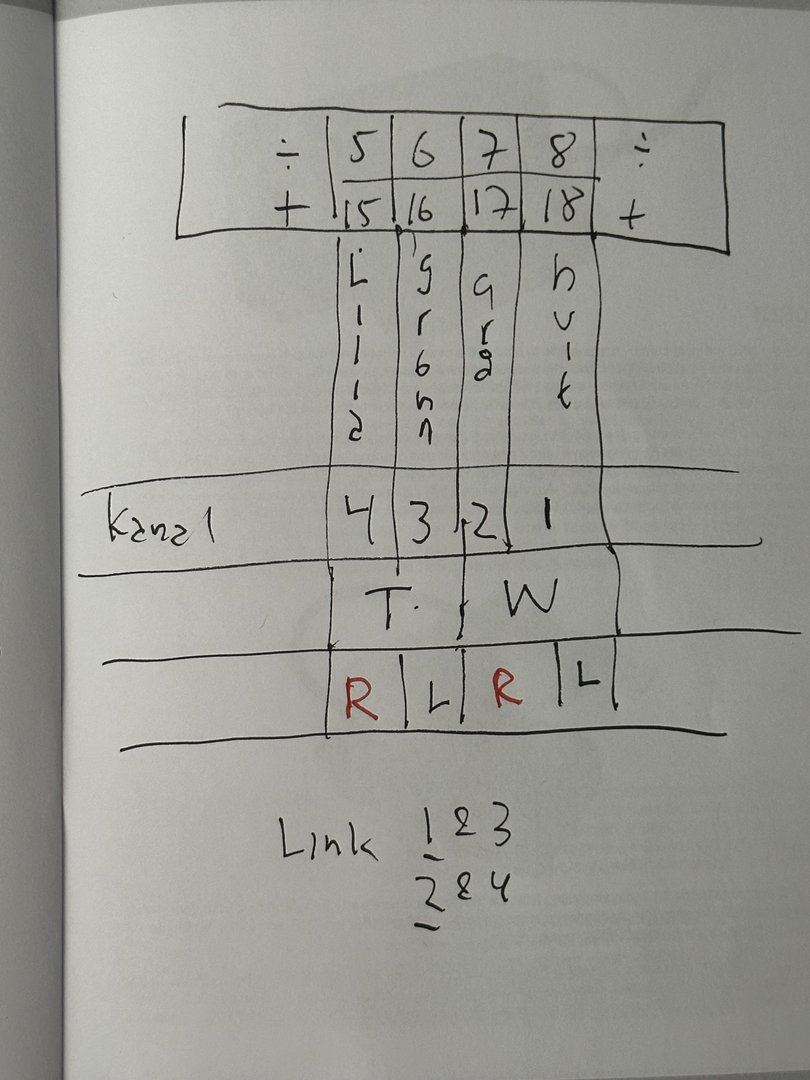 ÷ 5 6 7 8 ÷
+ 15 16 17 18 +
Lilla grönn grå hvit
Kanal 4 3 2 1
T. W
R L R L
Link 1 & 3
2 & 4